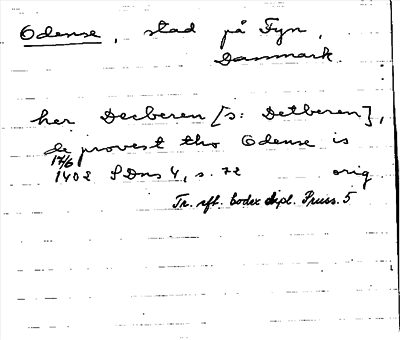 Odense, stad på Fyn,
Danmark.
her Decberen [ɔ: Detberen],
de provest tho Odense is
17/6
1402 SDns 4, s. 72 orig
Tr. eft. Codex dipl. Pruss. 5